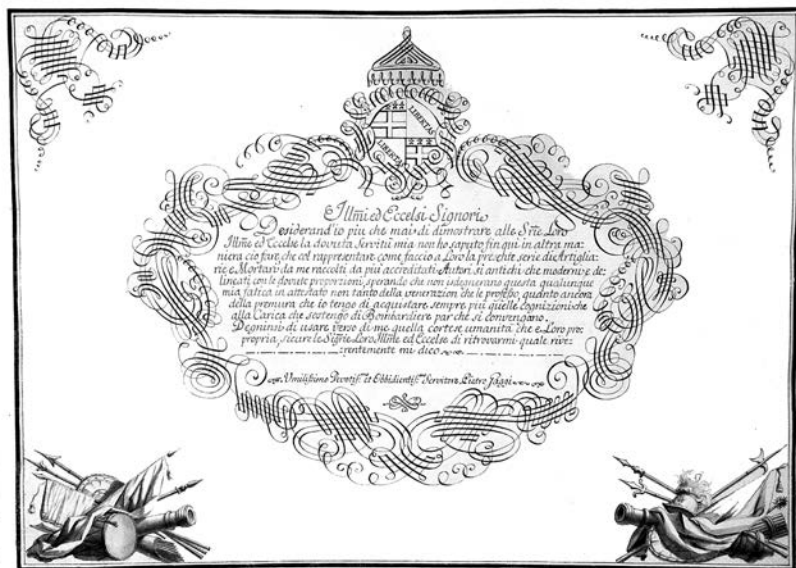 LIBERTAS
LIBERTAS
Illm̃i ed Eccelsi Signori
Desiderand'io piu che mai di dimostrare alle Srie Loro
Illme ed Eccelse la dovuta Servitù mia non ho saputo fin qui in altra ma:
niera cio fare, che col rappresentare come faccio a Loro la presente serie di Artiglia:
rie e Mortari da me raccolti da più accreditati Autori si antichi che moderni e de:
lineati con le dovute proporzioni, sperando che non isdegneranno questa qualunque
mia fatica in attestato non tanto della venerazion che le professo, quanto ancora
della premura che io tengo di acquistare sempre più quelle cognizioni che
alla Carica che sostengo di Bombardiere par che si convengano.
Degninsi di usare verso di me quella cortese umanità che è Loro pro:
propria, sicure le Sigrie Loro Illme ed Eccelse di ritrovarmi quale rive:
rentemente mi dico
Umilissimo Devotiss.o et Obbidientiss.o Servitore Pietro